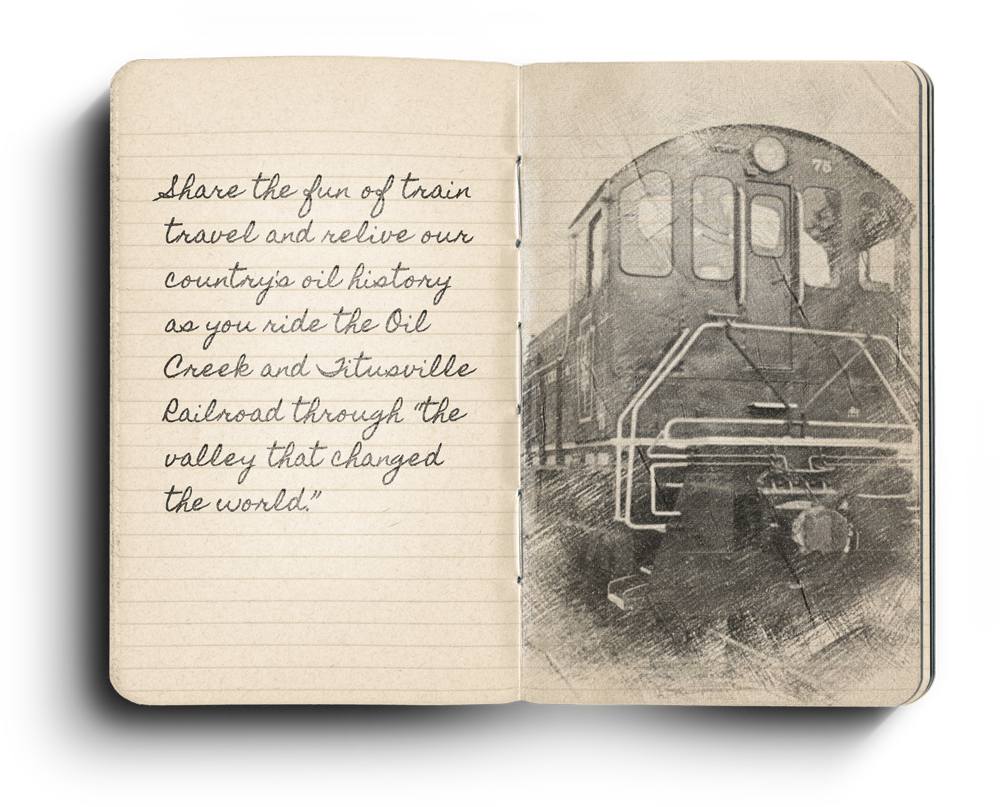 Share the fun of train
travel and relive our
country's oil history
as you ride the Oil
Creek and Titusville
Railroad through "the
valley that changed
the world."
75